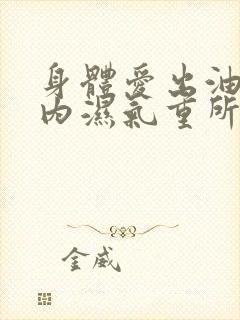 身體愛出油
內濕氣重所
金威